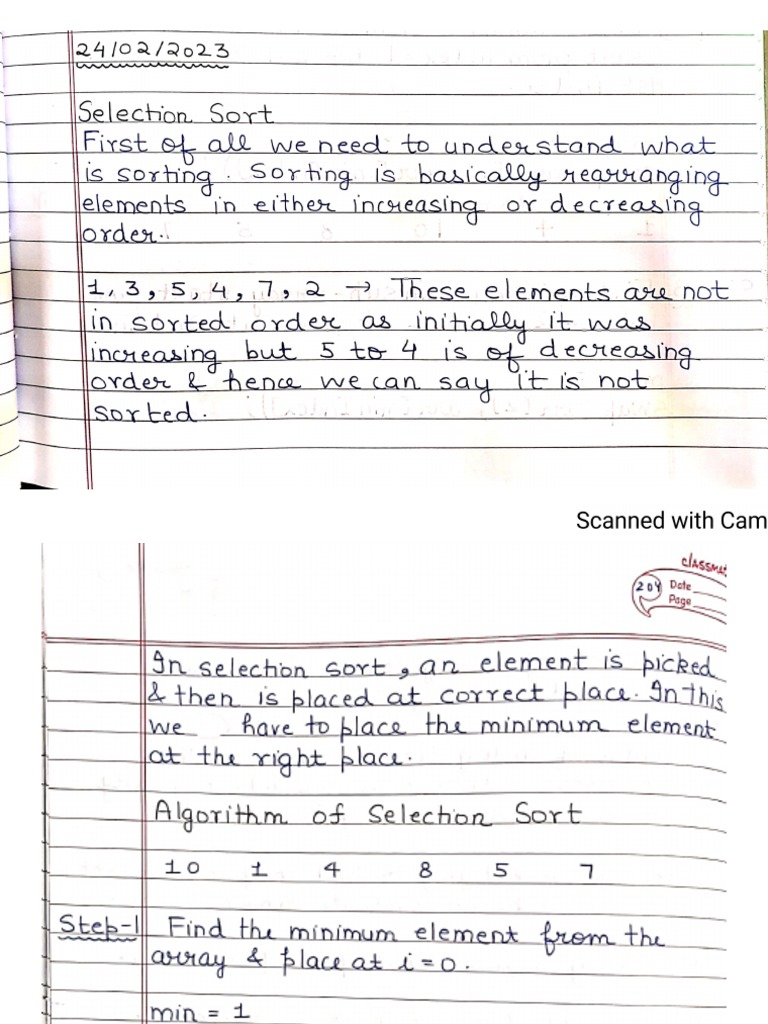 24/02/2023
Selection Sort
First of all we need to understand what
is sorting. Sorting is basically rearranging
elements in either increasing or decreasing
order.
1, 3, 5, 4, 7, 2 → These elements are not
in sorted order as initially it was
increasing but 5 to 4 is of decreasing
order & hence we can say it is not
sorted.
Scanned with Cam
classma
204 Date
Page
In selection sort, an element is picked
& then is placed at correct place. In this
we have to place the minimum element
at the right place.
Algorithm of Selection Sort
10 1 4 8 5 7
Step-1 Find the minimum element from the
array & place at i = 0.
min = 1